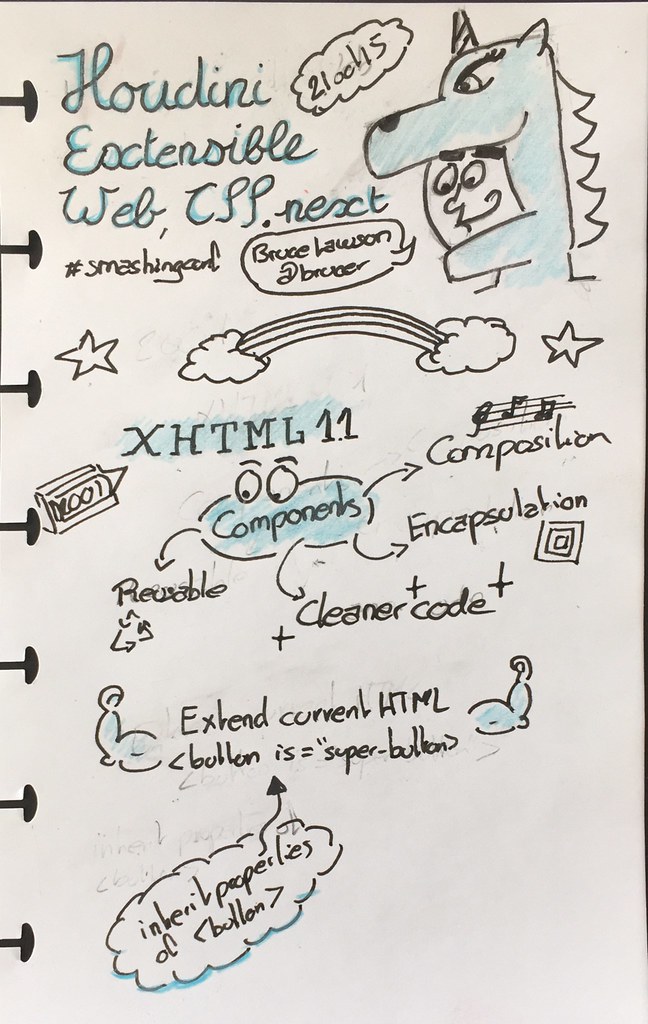 Houdini
21 oct 15
Extensible
Web, CSS.next
#smashingconf
Bruce Lawson
@brucel
XHTML 1.1
2001
Components
Composition
Encapsulation
Reusable
Cleaner code
Extend current HTML
<button is="super-button>
inherit properties
of <button>